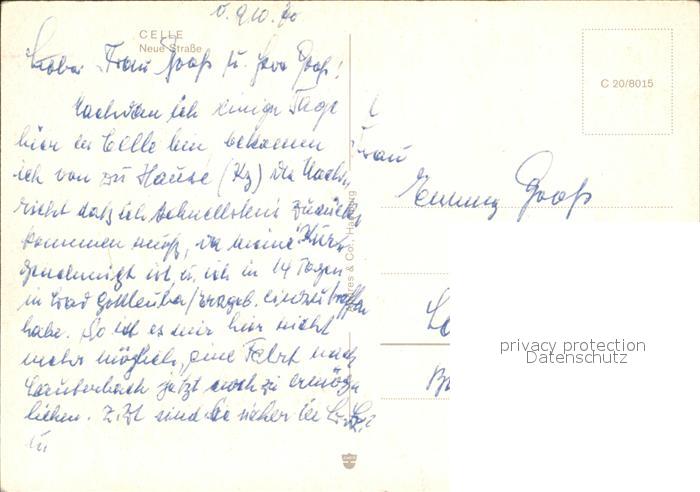 9.10.70
CELLE
Neue Straße
Liebe Frau Groß u. Herr Groß!
Nachdem ich einige Tage
hier in Celle bin bekomm
ich von zu Hause (Kz) die Nach-
richt daß ich schnellstens zurück
kommen muß, da meine Kur
genehmigt ist u. ich in 14 Tagen
in Bad Gottleuba/Erzgeb. einzutreffen
habe. So ist es mir hier nicht
mehr möglich, eine Fahrt nach
Lauterbach jetzt noch zu ermög-
lichen. Z.Zt sind Sie sicher in
Frau
Groß
C 20/8015
& Co., Hamburg
privacy protection
Datenschutz